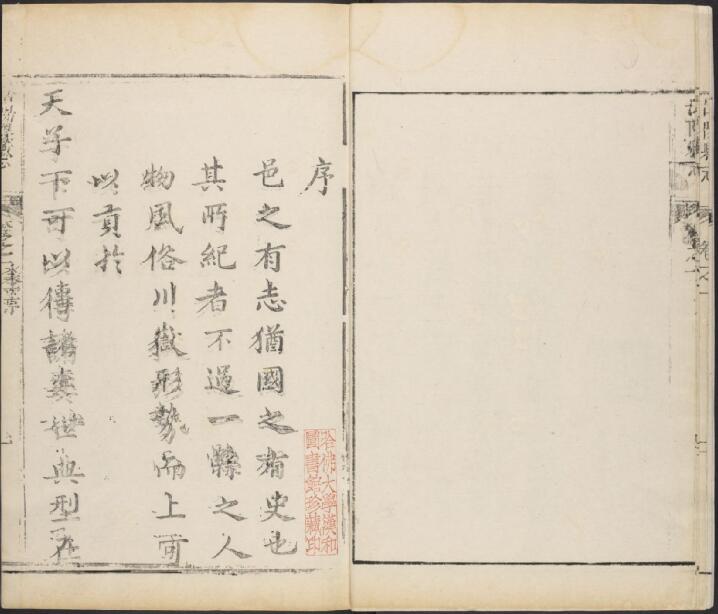 序
邑之有志猶國之有史也
其所紀者不過一縣之人
物風俗川嶽形勢而上可
以貢於
天子下可以傳諸奕世典型在
哈佛大學漢和
圖書館珍藏印